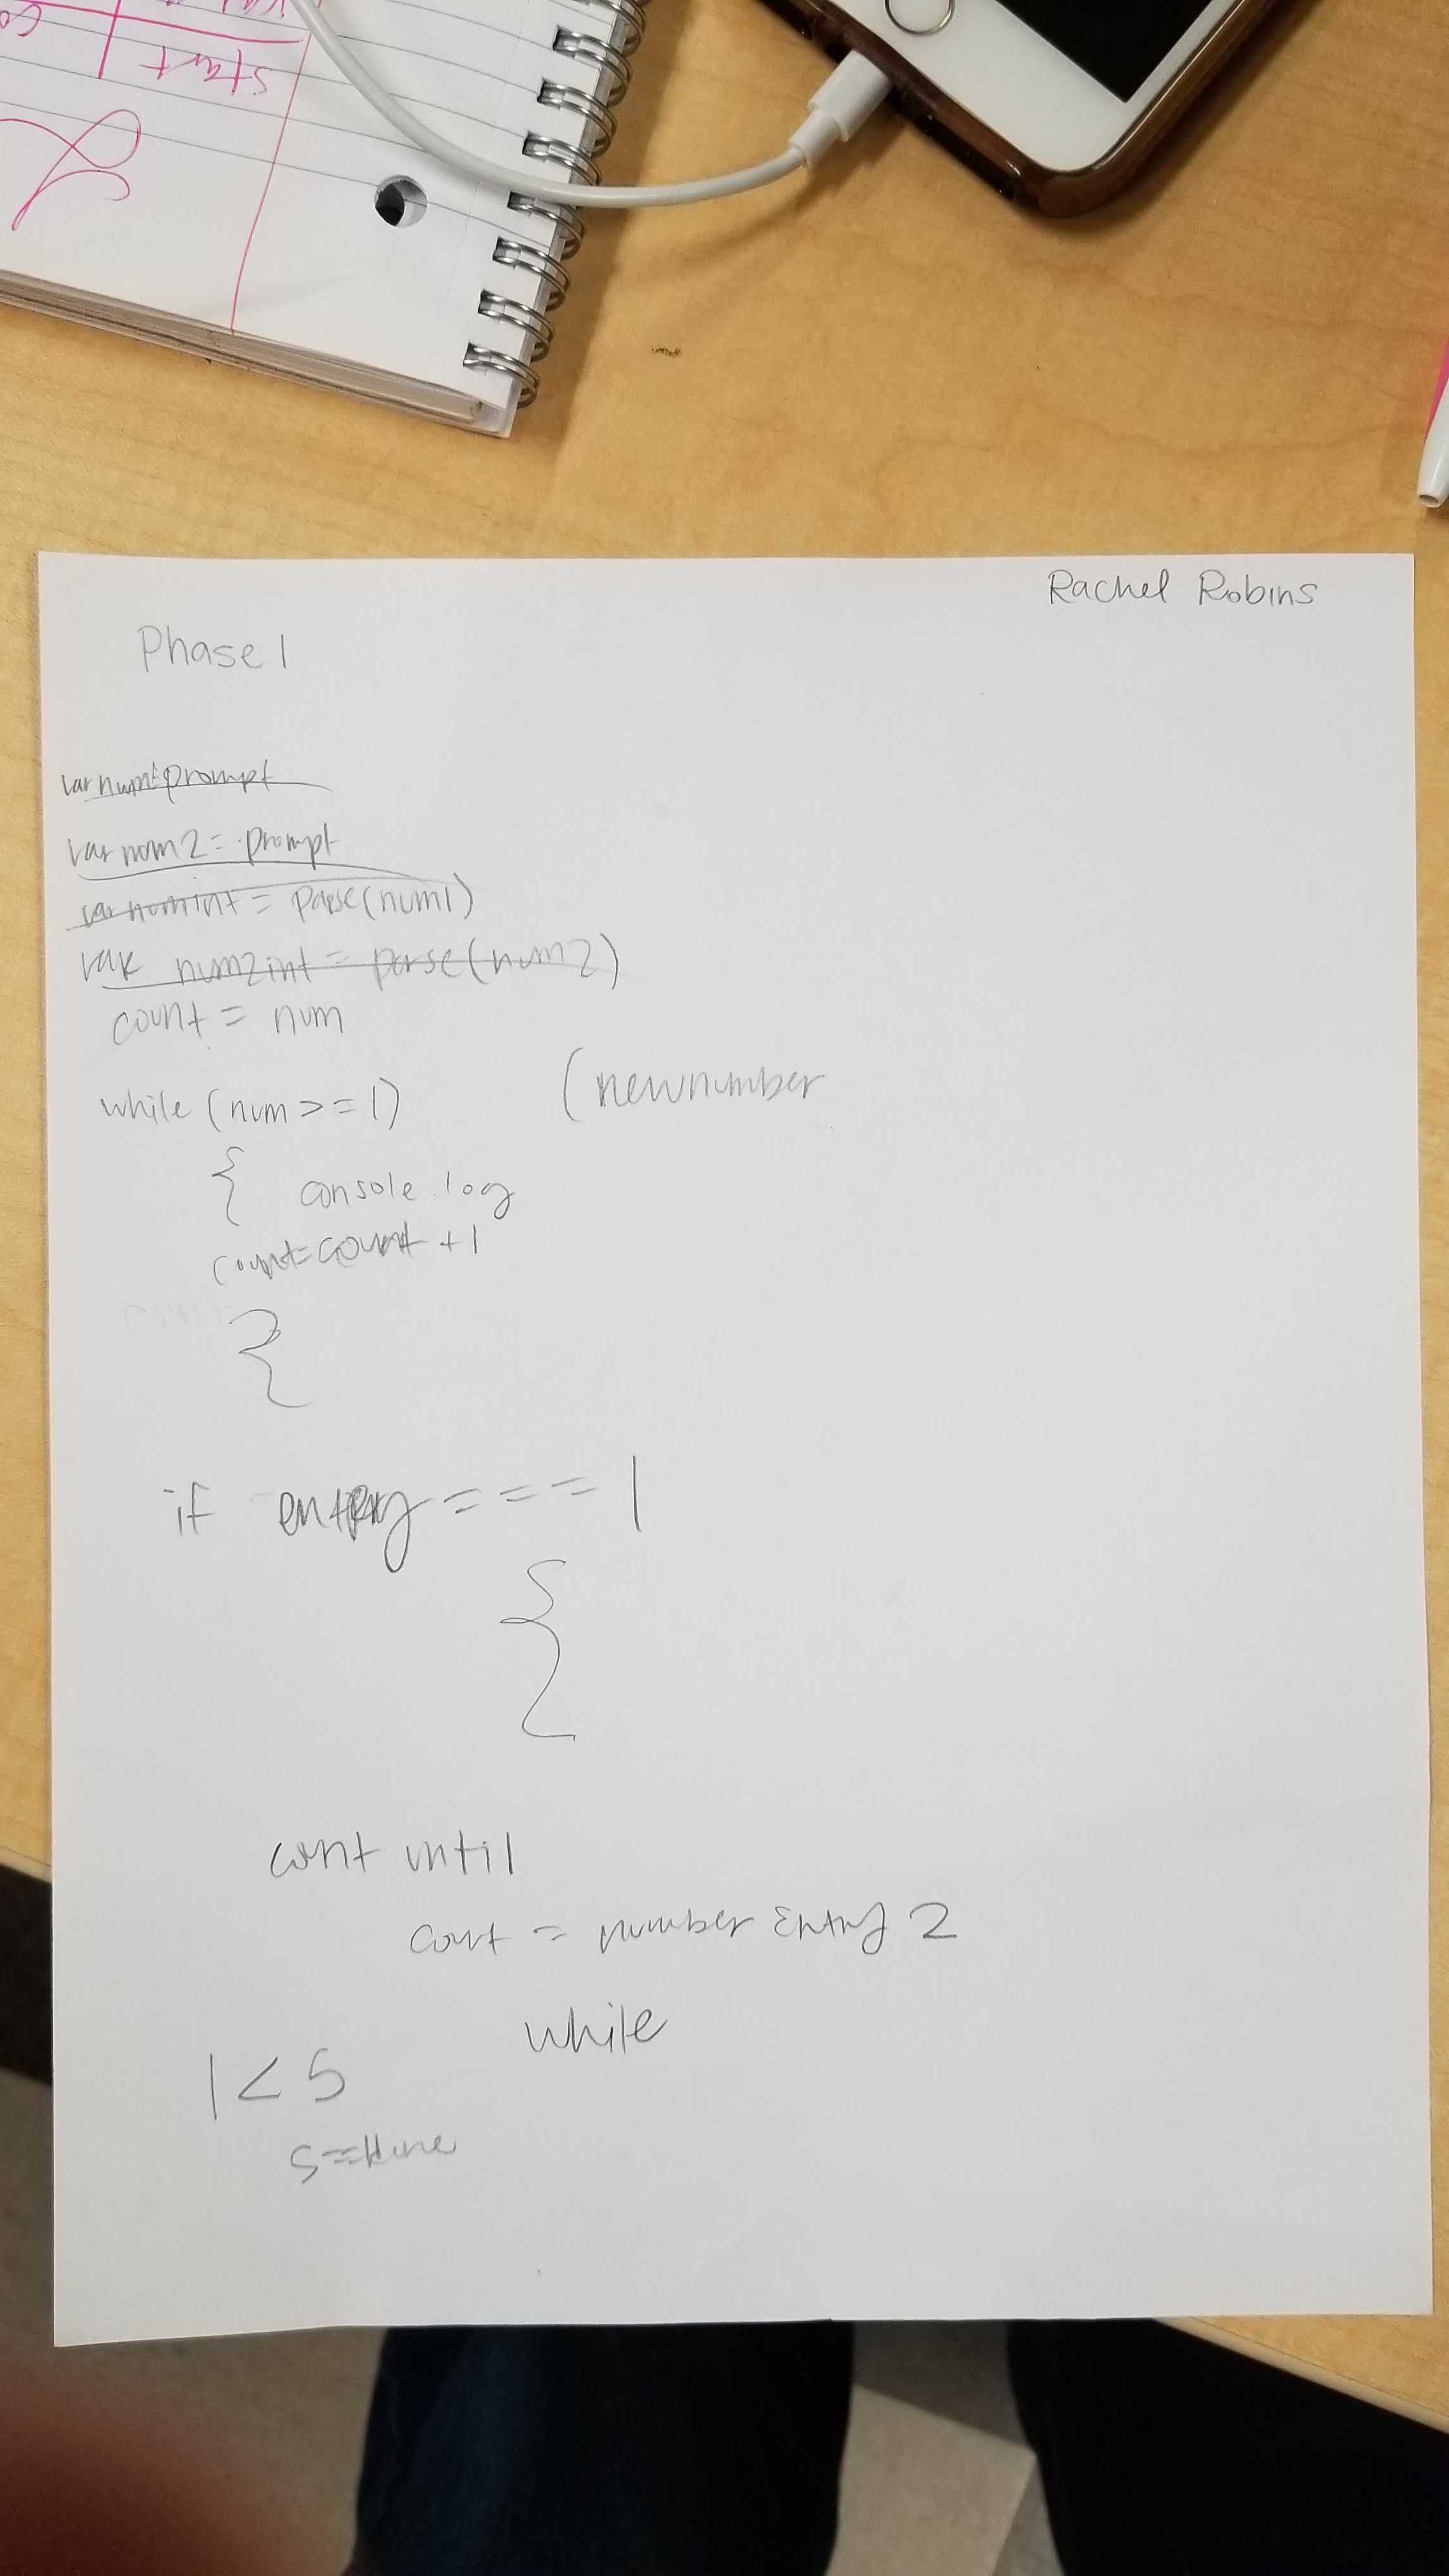 start
Rachel Robins
Phase 1
var num=prompt
var num2= prompt
var numint = Parse(num1)
var num2int = parse(num2)
count = num
while (num>=1) (newnumber
{ console.log
count=count +1
}
if entry === 1
{
cont until
cont = number Entry 2
while
1<5